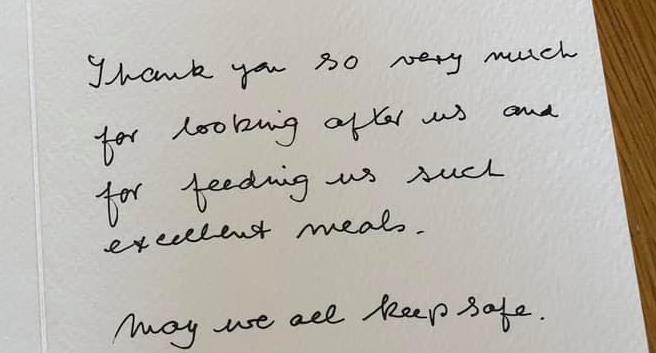 Thank you so very much
for looking after us and
for feeding us such
excellent meals.
May we all keep safe.